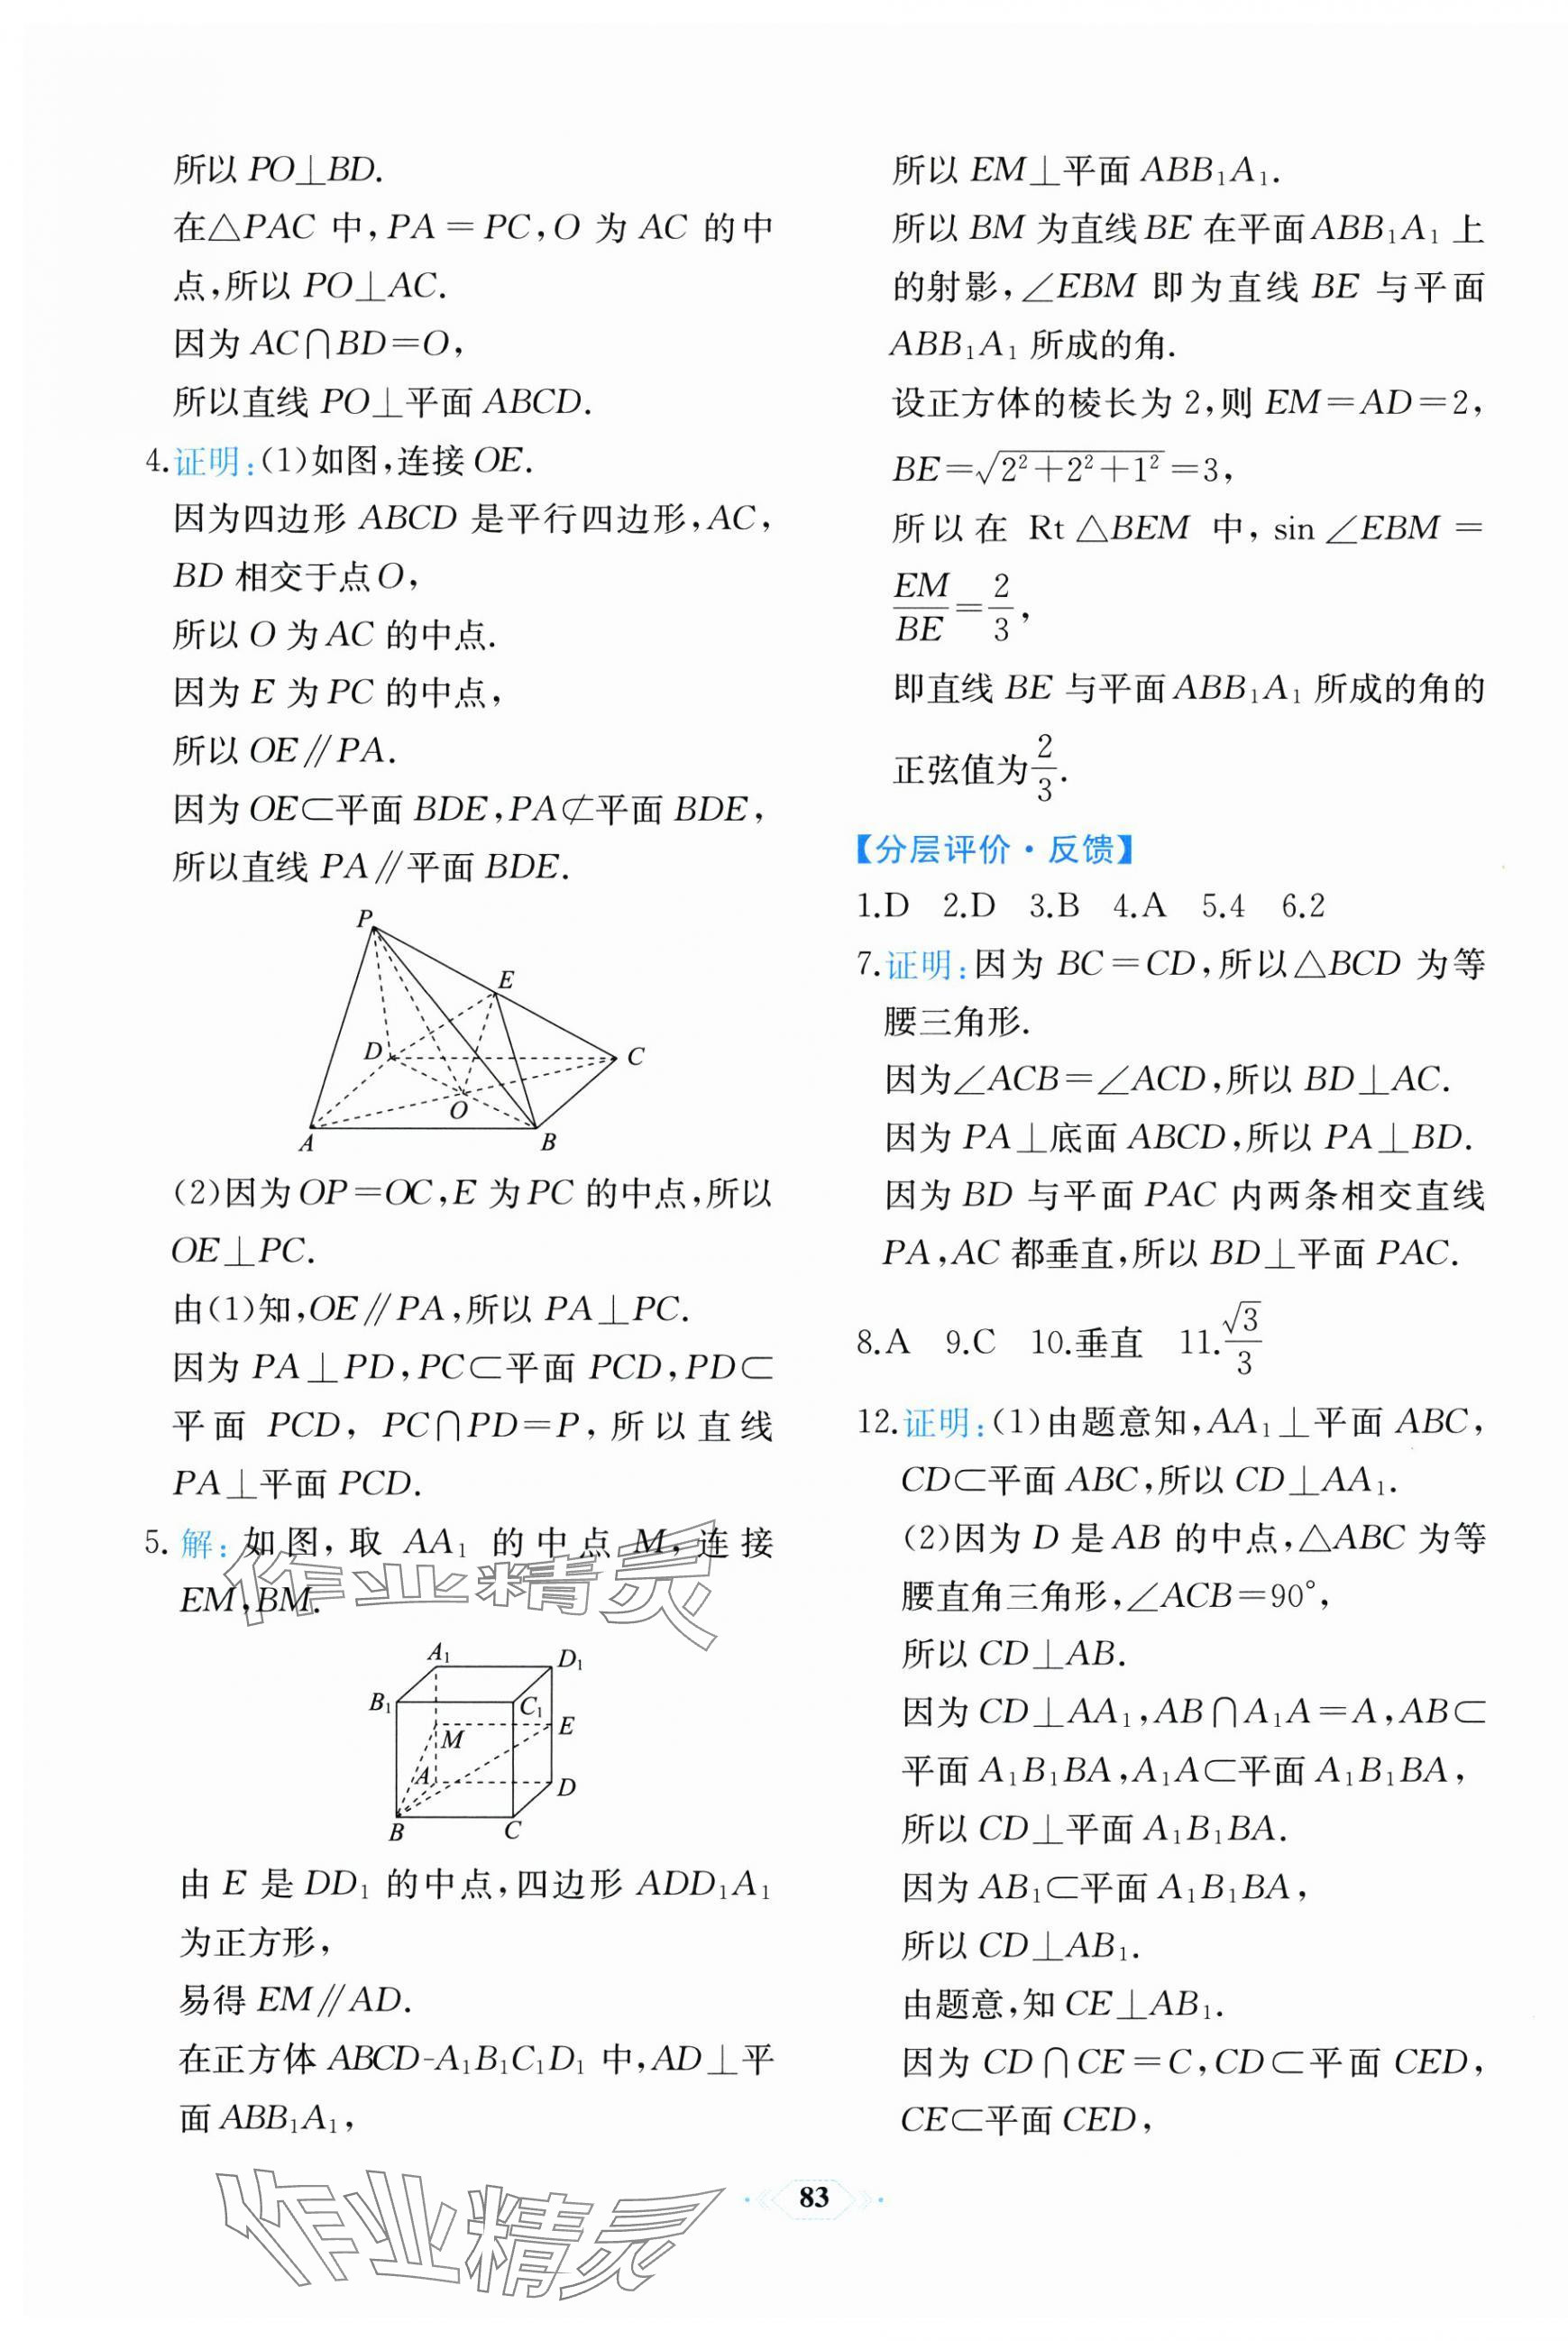 所以 PO⊥BD.
在△PAC 中,PA=PC,O 为 AC 的中
点,所以 PO⊥AC.
因为 AC∩BD=O,
所以直线 PO⊥平面 ABCD.
4.证明:(1)如图,连接 OE.
因为四边形 ABCD 是平行四边形,AC,
BD 相交于点 O,
所以 O 为 AC 的中点.
因为 E 为 PC 的中点,
所以 OE∥PA.
因为 OE⊂平面 BDE,PA⊄平面 BDE,
所以直线 PA∥平面 BDE.
P
E
D
C
O
A
B
(2)因为 OP=OC,E 为 PC 的中点,所以
OE⊥PC.
由(1)知,OE∥PA,所以 PA⊥PC.
因为 PA⊥PD,PC⊂平面 PCD,PD⊂
平面 PCD, PC∩PD=P,所以直线
PA⊥平面 PCD.
5.解:如图,取 AA₁ 的中点 M,连接
EM,BM.
A₁
D₁
B₁
C₁
E
M
A
D
B
C
由 E 是 DD₁ 的中点,四边形 ADD₁A₁
为正方形,
易得 EM∥AD.
在正方体 ABCD-A₁B₁C₁D₁ 中,AD⊥平
面 ABB₁A₁,
所以 EM⊥平面 ABB₁A₁.
所以 BM 为直线 BE 在平面 ABB₁A₁ 上
的射影,∠EBM 即为直线 BE 与平面
ABB₁A₁ 所成的角.
设正方体的棱长为 2,则 EM=AD=2,
BE=√(2²+2²+1²)=3,
所以在 Rt△BEM 中, sin∠EBM=
EM/BE=2/3,
即直线 BE 与平面 ABB₁A₁ 所成的角的
正弦值为2/3.
【分层评价·反馈】
1.D 2.D 3.B 4.A 5.4 6.2
7.证明:因为 BC=CD,所以△BCD 为等
腰三角形.
因为∠ACB=∠ACD,所以 BD⊥AC.
因为 PA⊥底面 ABCD,所以 PA⊥BD.
因为 BD 与平面 PAC 内两条相交直线
PA,AC 都垂直,所以 BD⊥平面 PAC.
8.A 9.C 10.垂直 11.√3/3
12.证明:(1)由题意知,AA₁⊥平面 ABC,
CD⊂平面 ABC,所以 CD⊥AA₁.
(2)因为 D 是 AB 的中点,△ABC 为等
腰直角三角形,∠ACB=90°,
所以 CD⊥AB.
因为 CD⊥AA₁,AB∩A₁A=A,AB⊂
平面 A₁B₁BA,A₁A⊂平面 A₁B₁BA,
所以 CD⊥平面 A₁B₁BA.
因为 AB₁⊂平面 A₁B₁BA,
所以 CD⊥AB₁.
由题意,知 CE⊥AB₁.
因为 CD∩CE=C,CD⊂平面 CED,
CE⊂平面 CED,
作业精灵
作业精灵
83